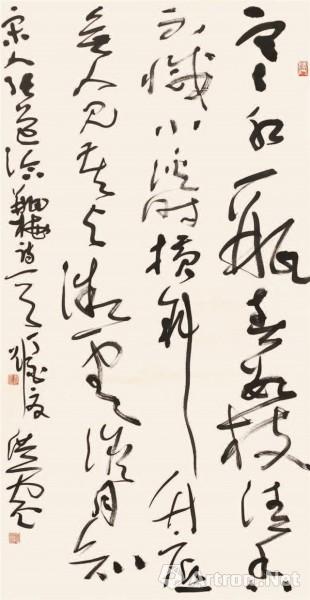 寒水一瓶春数枝清香
不減小溪时橫斜竹底
無人見莫与微雲淡月知
宋人张道洽瓶梅诗一首
Artron.Net